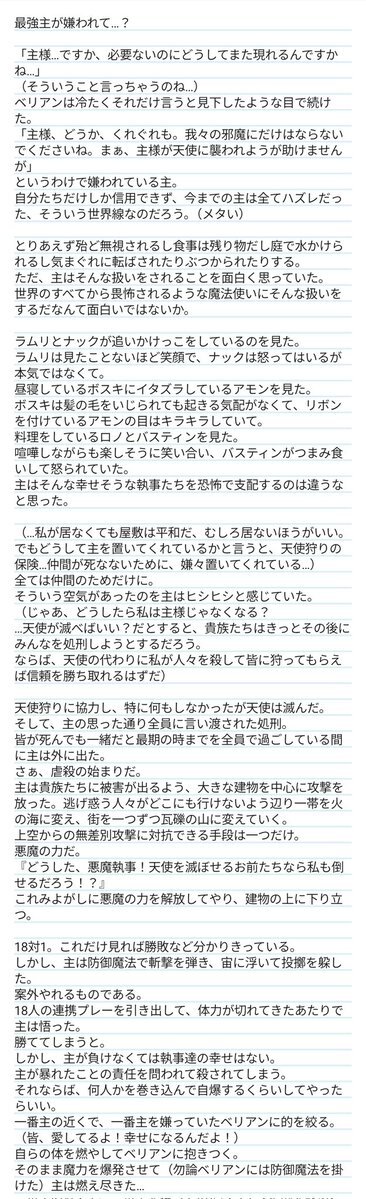 最強主が嫌われて…？
「主様…ですか、必要ないのにどうしてまた現れるんですか
ね…」
（そういうこと言っちゃうのね…）
ベリアンは冷たくそれだけ言うと見下したような目で続け
た。
「主様、どうか、くれぐれも。我々の邪魔にだけはならない
でくださいね。まぁ、主様が天使に襲われようが助けません
が」
というわけで嫌われている主。
自分たちだけしか信用できず、今までの主は全てハズレだっ
た、そういう世界線なのだろう。（メタい）
とりあえず殆ど無視されるし食事は残り物だし庭で水かけら
れるし気まぐれに転ばされたりぶつかられたりする。
ただ、主はそんな扱いをされることを面白く思っていた。
世界のすべてから畏怖されるような魔法使いにそんな扱いを
するだなんて面白いではないか。
ラムリとナックが追いかけっこをしているのを見た。
ラムリは見たことないほど笑顔で、ナックは怒ってはいるが
本気ではなくて。
昼寝しているボスキにイタズラしているアモンを見た。
ボスキは髪の毛をいじられても起きる気配がなくて、リボン
を付けているアモンの目はキラキラしていて。
料理をしているロノとバスティンを見た。
喧嘩しながらも楽しそうに笑い合い、バスティンがつまみ食
いして怒られていた。
主はそんな幸せそうな執事たちを恐怖で支配するのは違うな
と思った。
（…私が居なくても屋敷は平和だ、むしろ居ないほうがいい。
でもどうして主を置いてくれているかと言うと、天使狩りの
保険…仲間が死なないために、嫌々置いてくれている…）
全ては仲間のためだけに。
そういう空気があったのを主はヒシヒシと感じていた。
（じゃあ、どうしたら私は主様じゃなくなる？
…天使が滅べばいい？だとすると、貴族たちはきっとその後に
みんなを処刑しようとするだろう。
ならば、天使の代わりに私が人々を殺して皆に狩ってもらえ
ば信頼を勝ち取れるはずだ）
天使狩りに協力し、特に何もしなかったが天使は滅んだ。
そして、主の思った通り全員に言い渡された処刑。
皆が死んでも一緒だと最期の時までを全員で過ごしている間
に主は外に出た。
さぁ、虐殺の始まりだ。
主は貴族たちに被害が出るよう、大きな建物を中心に攻撃を
放った。逃げ惑う人々がどこにも行けないよう辺り一帯を火
の海に変え、街を一つずつ瓦礫の山に変えていく。
上空からの無差別攻撃に対抗できる手段は一つだけ。
悪魔の力だ。
『どうした、悪魔執事！天使を滅ぼせるお前たちなら私も倒
せるだろう！？』
これみよがしに悪魔の力を解放してやり、建物の上に下り立
つ。
18対1。これだけ見れば勝敗など分かりきっている。
しかし、主は防御魔法で斬撃を弾き、宙に浮いて投擲を躱し
た。
案外やれるものである。
18人の連携プレーを引き出して、体力が切れてきたあたりで
主は悟った。
勝ててしまうと。
しかし、主が負けなくては執事達の幸せはない。
主が暴れたことの責任を問われて殺されてしまう。
それならば、何人かを巻き込んで自爆するくらいしてやった
らいい。
一番主の近くで、一番主を嫌っていたベリアンに的を絞る。
（皆、愛してるよ！幸せになるんだよ！）
自らの体を燃やしてベリアンに抱きつく。
そのまま魔力を爆発させて（勿論ベリアンには防御魔法を掛
けた）主は燃え尽きた…